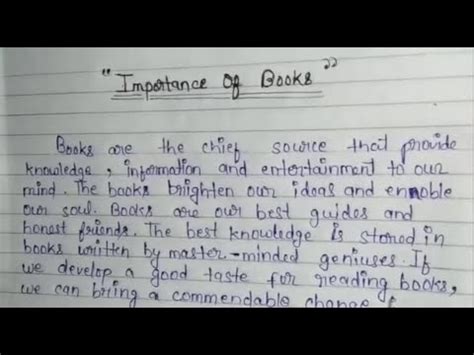 "Importance Of Books"
Books are the chief source that provide
knowledge, information and entertainment to our
mind. The books brighten our ideas and ennoble
our soul. Books are our best guides and
honest friends. The best knowledge is stored in
books written by master-minded geniuses. If
we develop a good taste for reading books,
we can bring a commendable change